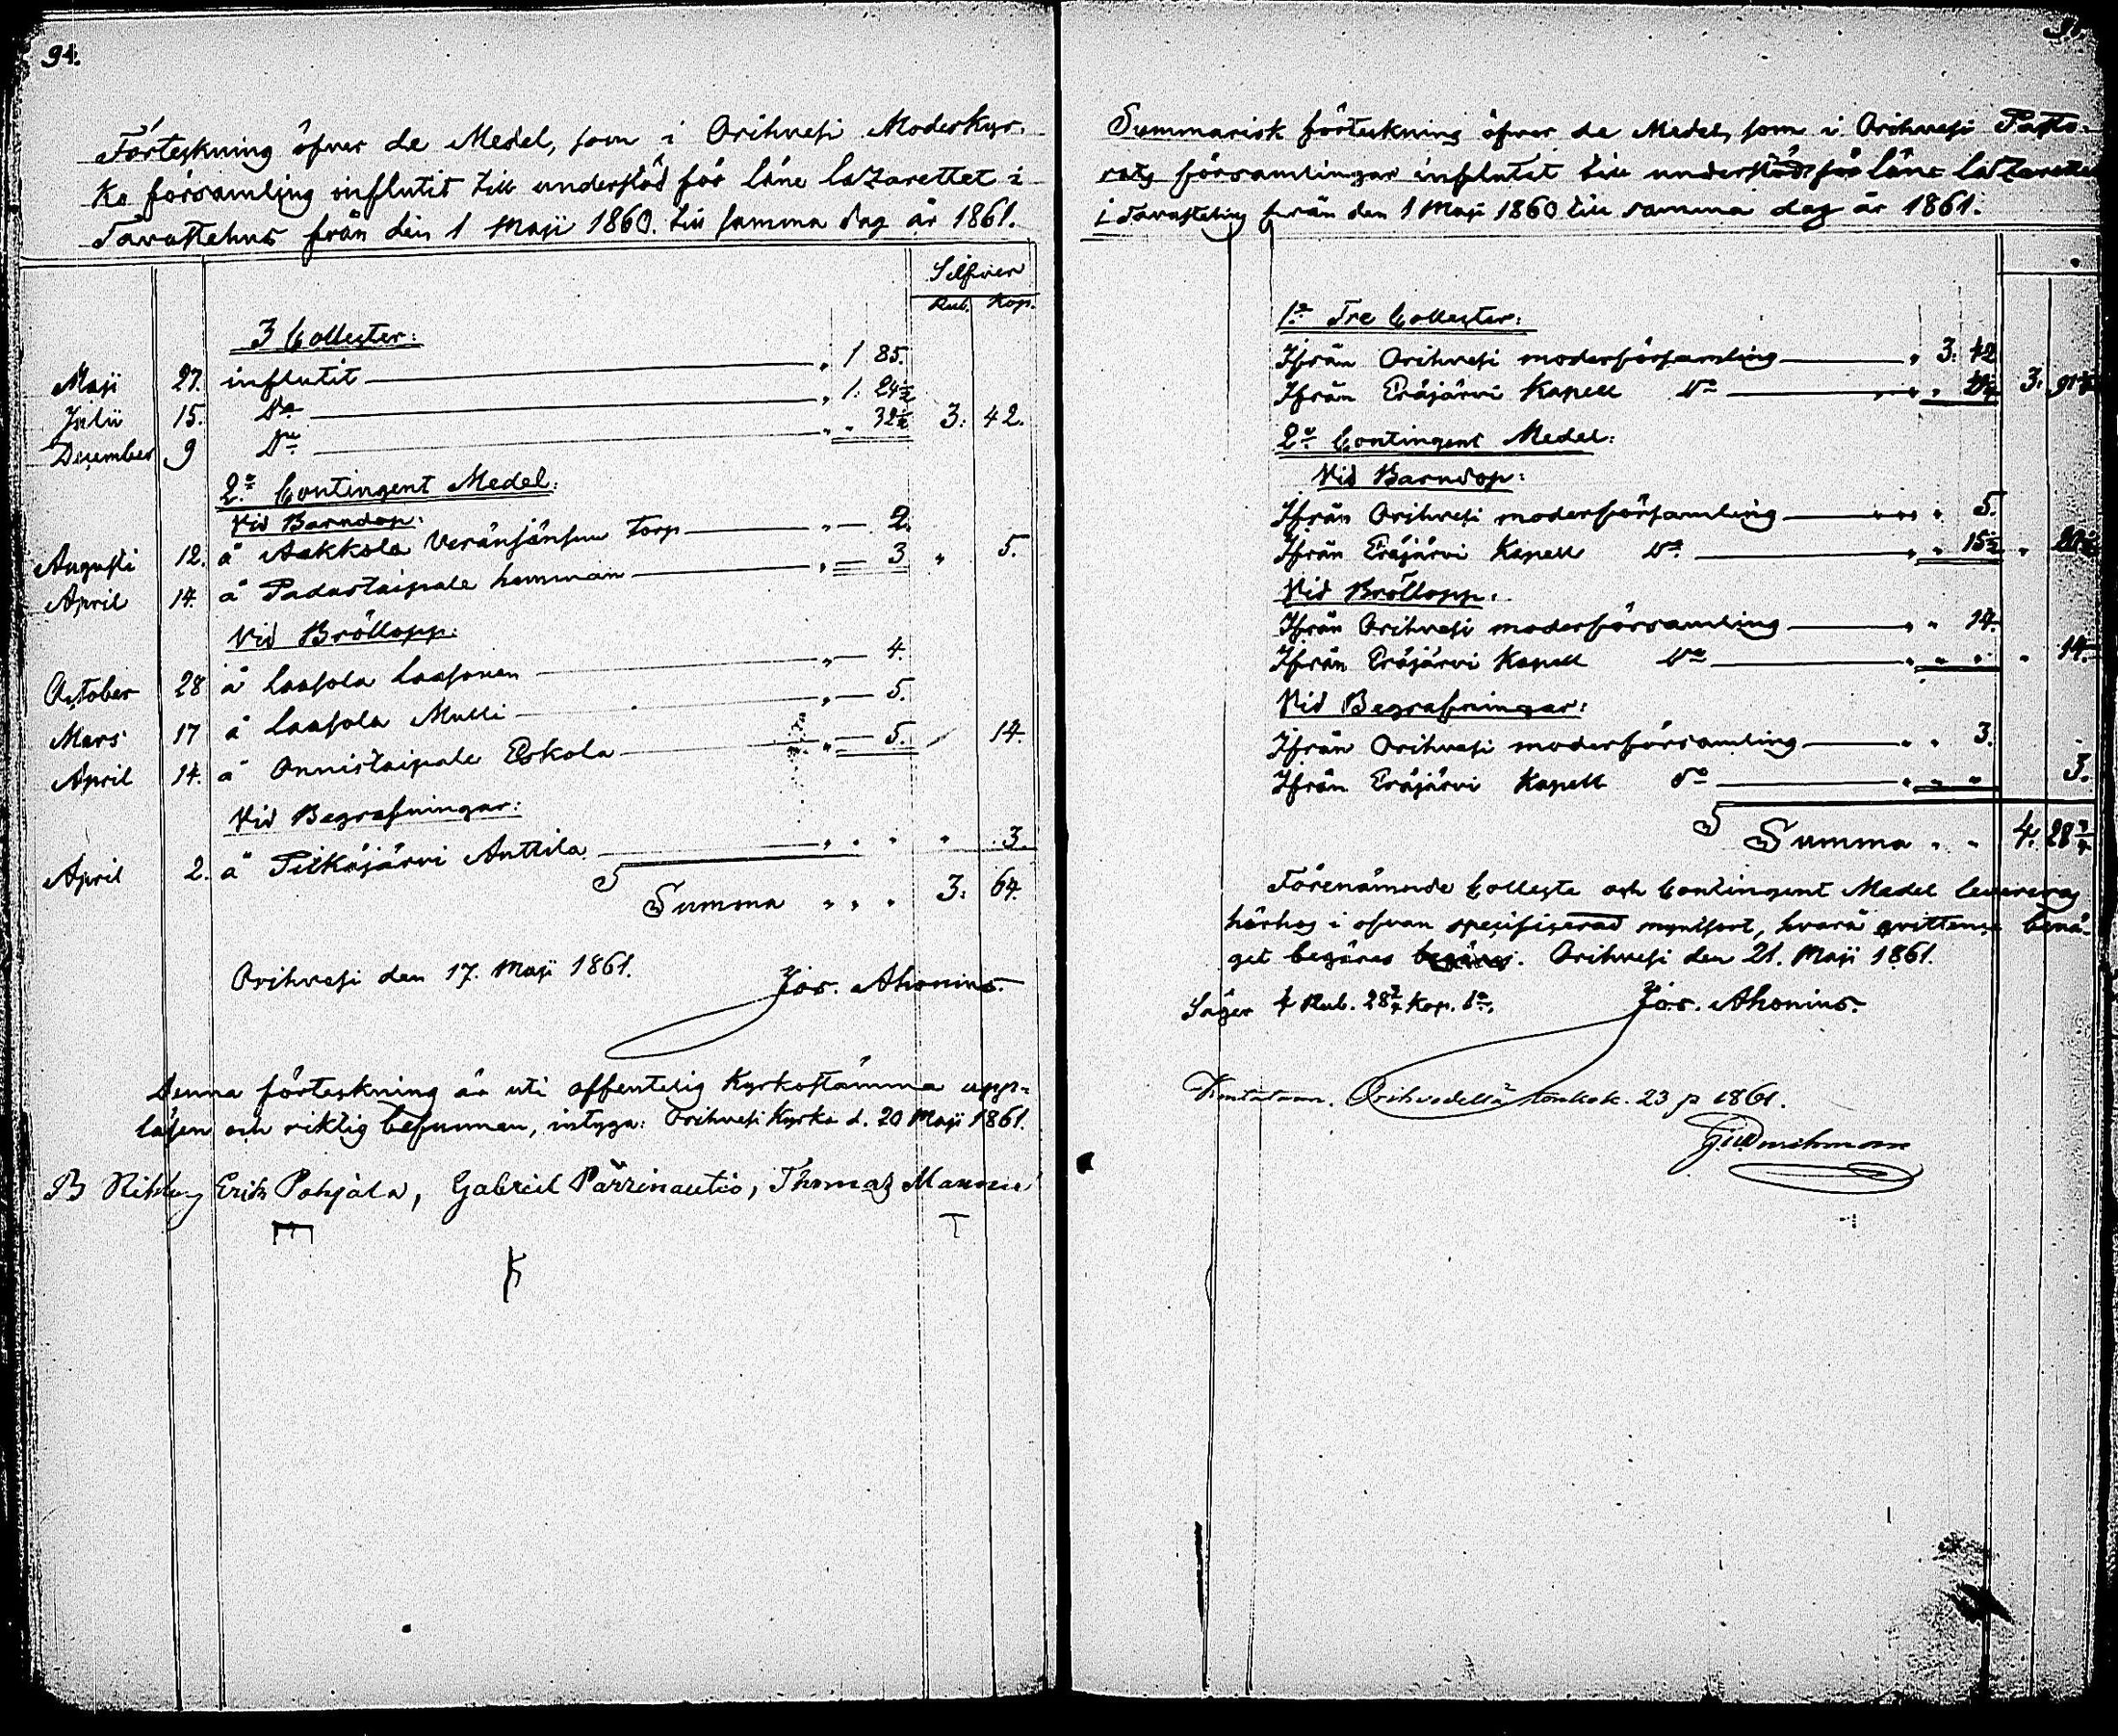 94.
Förteckning öfver de Medel, som i Orihvesi Moderkyr-
ko församling influtit till understöd för läne lazarettet i
Tavastehus från den 1 Maji 1860 till samma dag år 1861.
Silfver
Rub. Kop.
3 Collecter:
Maji 27. influtit „ 1 85.
Julii 15. Do „ 1: 24½
December 9 Do „ „ 32½ 3: 42.
2o Contingent Medel:
Vid Barndop:
Augusti 12. å Aakkola Veränjänsuu torp „ — 2.
April 14. å Padastaipale hemman „ — 3 „ 5.
Vid Bröllopp:
October 28 å Laasola Laasonen „ — 4.
Mars 17 å Laasola Mulli „ — 5.
April 14. å Onnistaipale Eskola „ — 5. 14.
Vid Begrafningar:
April 2. å Pitkäjärvi Anttila „ „ „ „ 3.
Summa „ „ „ 3: 64.
Orihvesi den 17. Maji 1861.
Jos. Ahonius.
Denna förteckning är uti offentelig Kyrkostämma upp-
läsen och riktig befunnen, intyga: Orihvesi Kyrka d. 20 Maji 1861.
Erik Pohjala, Gabriel Pärrinautio, Thomas
K T
Summarisk förteckning öfver de Medel, som i Orihvesi Pasto-
rats församlingar influtit till understöd för läne lazarettet
i Tavastehus från den 1 Maji 1860 till samma dag år 1861.
1o Tre Collecter:
Ifrån Orihvesi moderförsamling „ 3: 42
Ifrån Eräjärvi Kapell Do 3:
2o Contingent Medel:
Vid Barndop:
Ifrån Orihvesi moderförsamling „ 5.
Ifrån Eräjärvi Kapell Do „ 15½ „
Vid Bröllopp:
Ifrån Orihvesi moderförsamling „ „ 14.
Ifrån Eräjärvi Kapell Do „ „ „ „ 14.
Vid Begrafningar:
Ifrån Orihvesi moderförsamling „ „ 3.
Ifrån Eräjärvi Kapell Do „ „ „ 3.
Summa „ „ 4. 28¾
Förenämnde Collecte och Contingent Medel levereras
härhos i ofvan specificerad myntsort, hvarå qvittence benä-
get begäres begäres. Orihvesi den 21. Maji 1861.
Säger 4 Rub. 28¾ Kop. So. Jos. Ahonius.
Orihvedellä toukok. 23 p 1861.